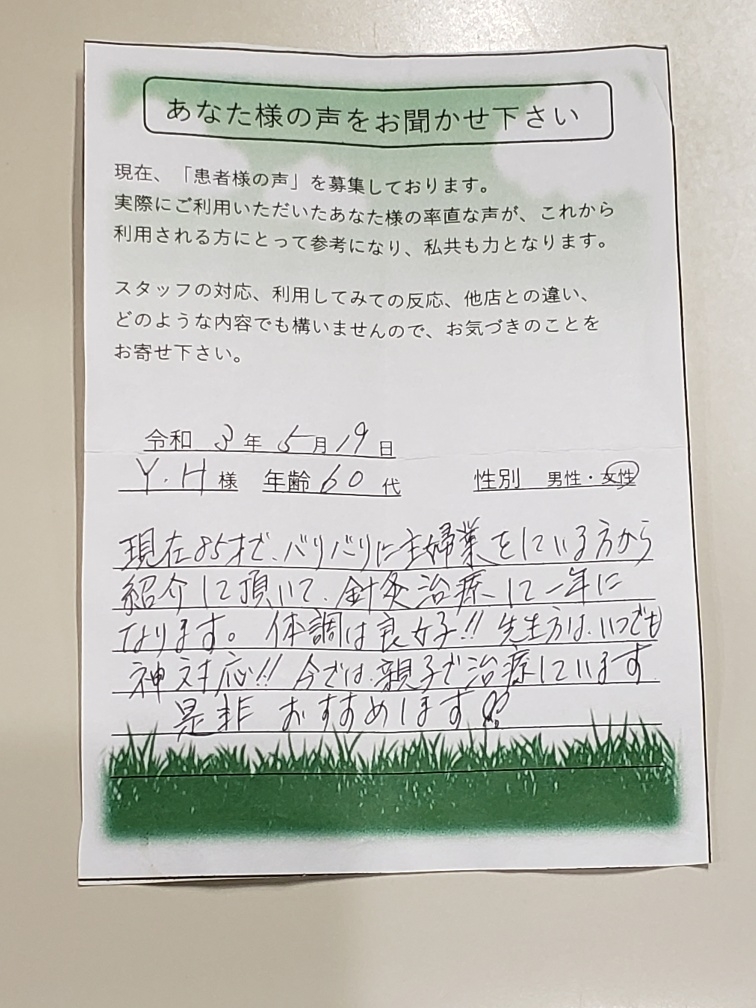 あなた様の声をお聞かせ下さい
現在、「患者様の声」を募集しております。
実際にご利用いただいたあなた様の率直な声が、これから
利用される方にとって参考になり、私共も力となります。
スタッフの対応、利用してみての反応、他店との違い、
どのような内容でも構いませんので、お気づきのことを
お寄せ下さい。
令和 3年 5月19日
Y.H 様 年齢 60代 性別 男性・女性
現在85才で、バリバリに主婦業をしている方から
紹介して頂いて、針灸治療して一年に
なります。体調は良好!! 先生方は、いつでも
神対応!! 今では、親子で治療しています
是非 おすすめします!!